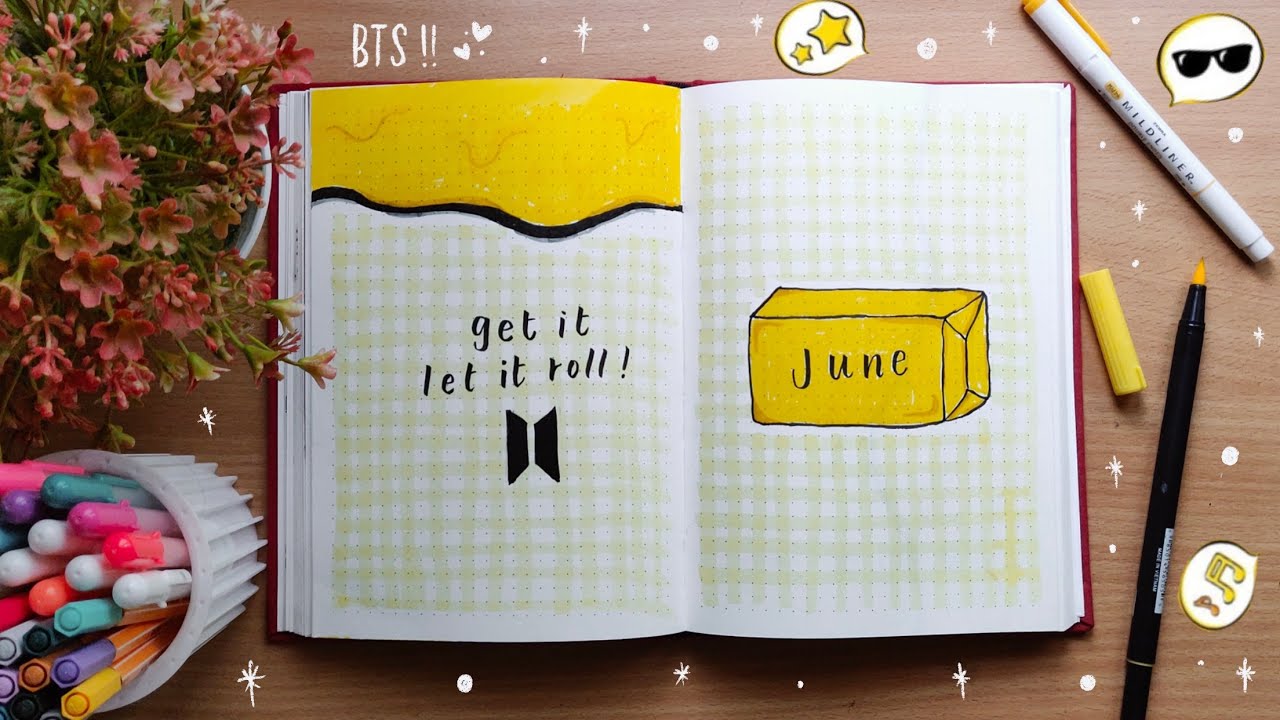 BTS!!
MILDLINER.
get it
let it roll!
June